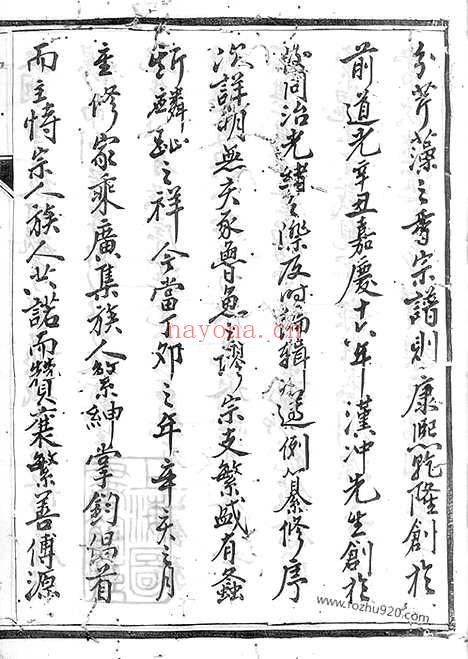 分芹藻之香宗譜則康熙乾隆創於
前道光辛丑嘉慶十六年漢冲先生創於
後同治光緒之際及時編輯遵例纂修序
次詳明無亥豕魯魚之謬宗支繁盛有螽
斯麟趾之祥今當丁卯之年辛亥之月
重修家乘廣集族人縈紳掌鈞倡首
而主恃宗人族人共諾而贊襄繁善傳源
hayona.cn
www.rozhu920.com